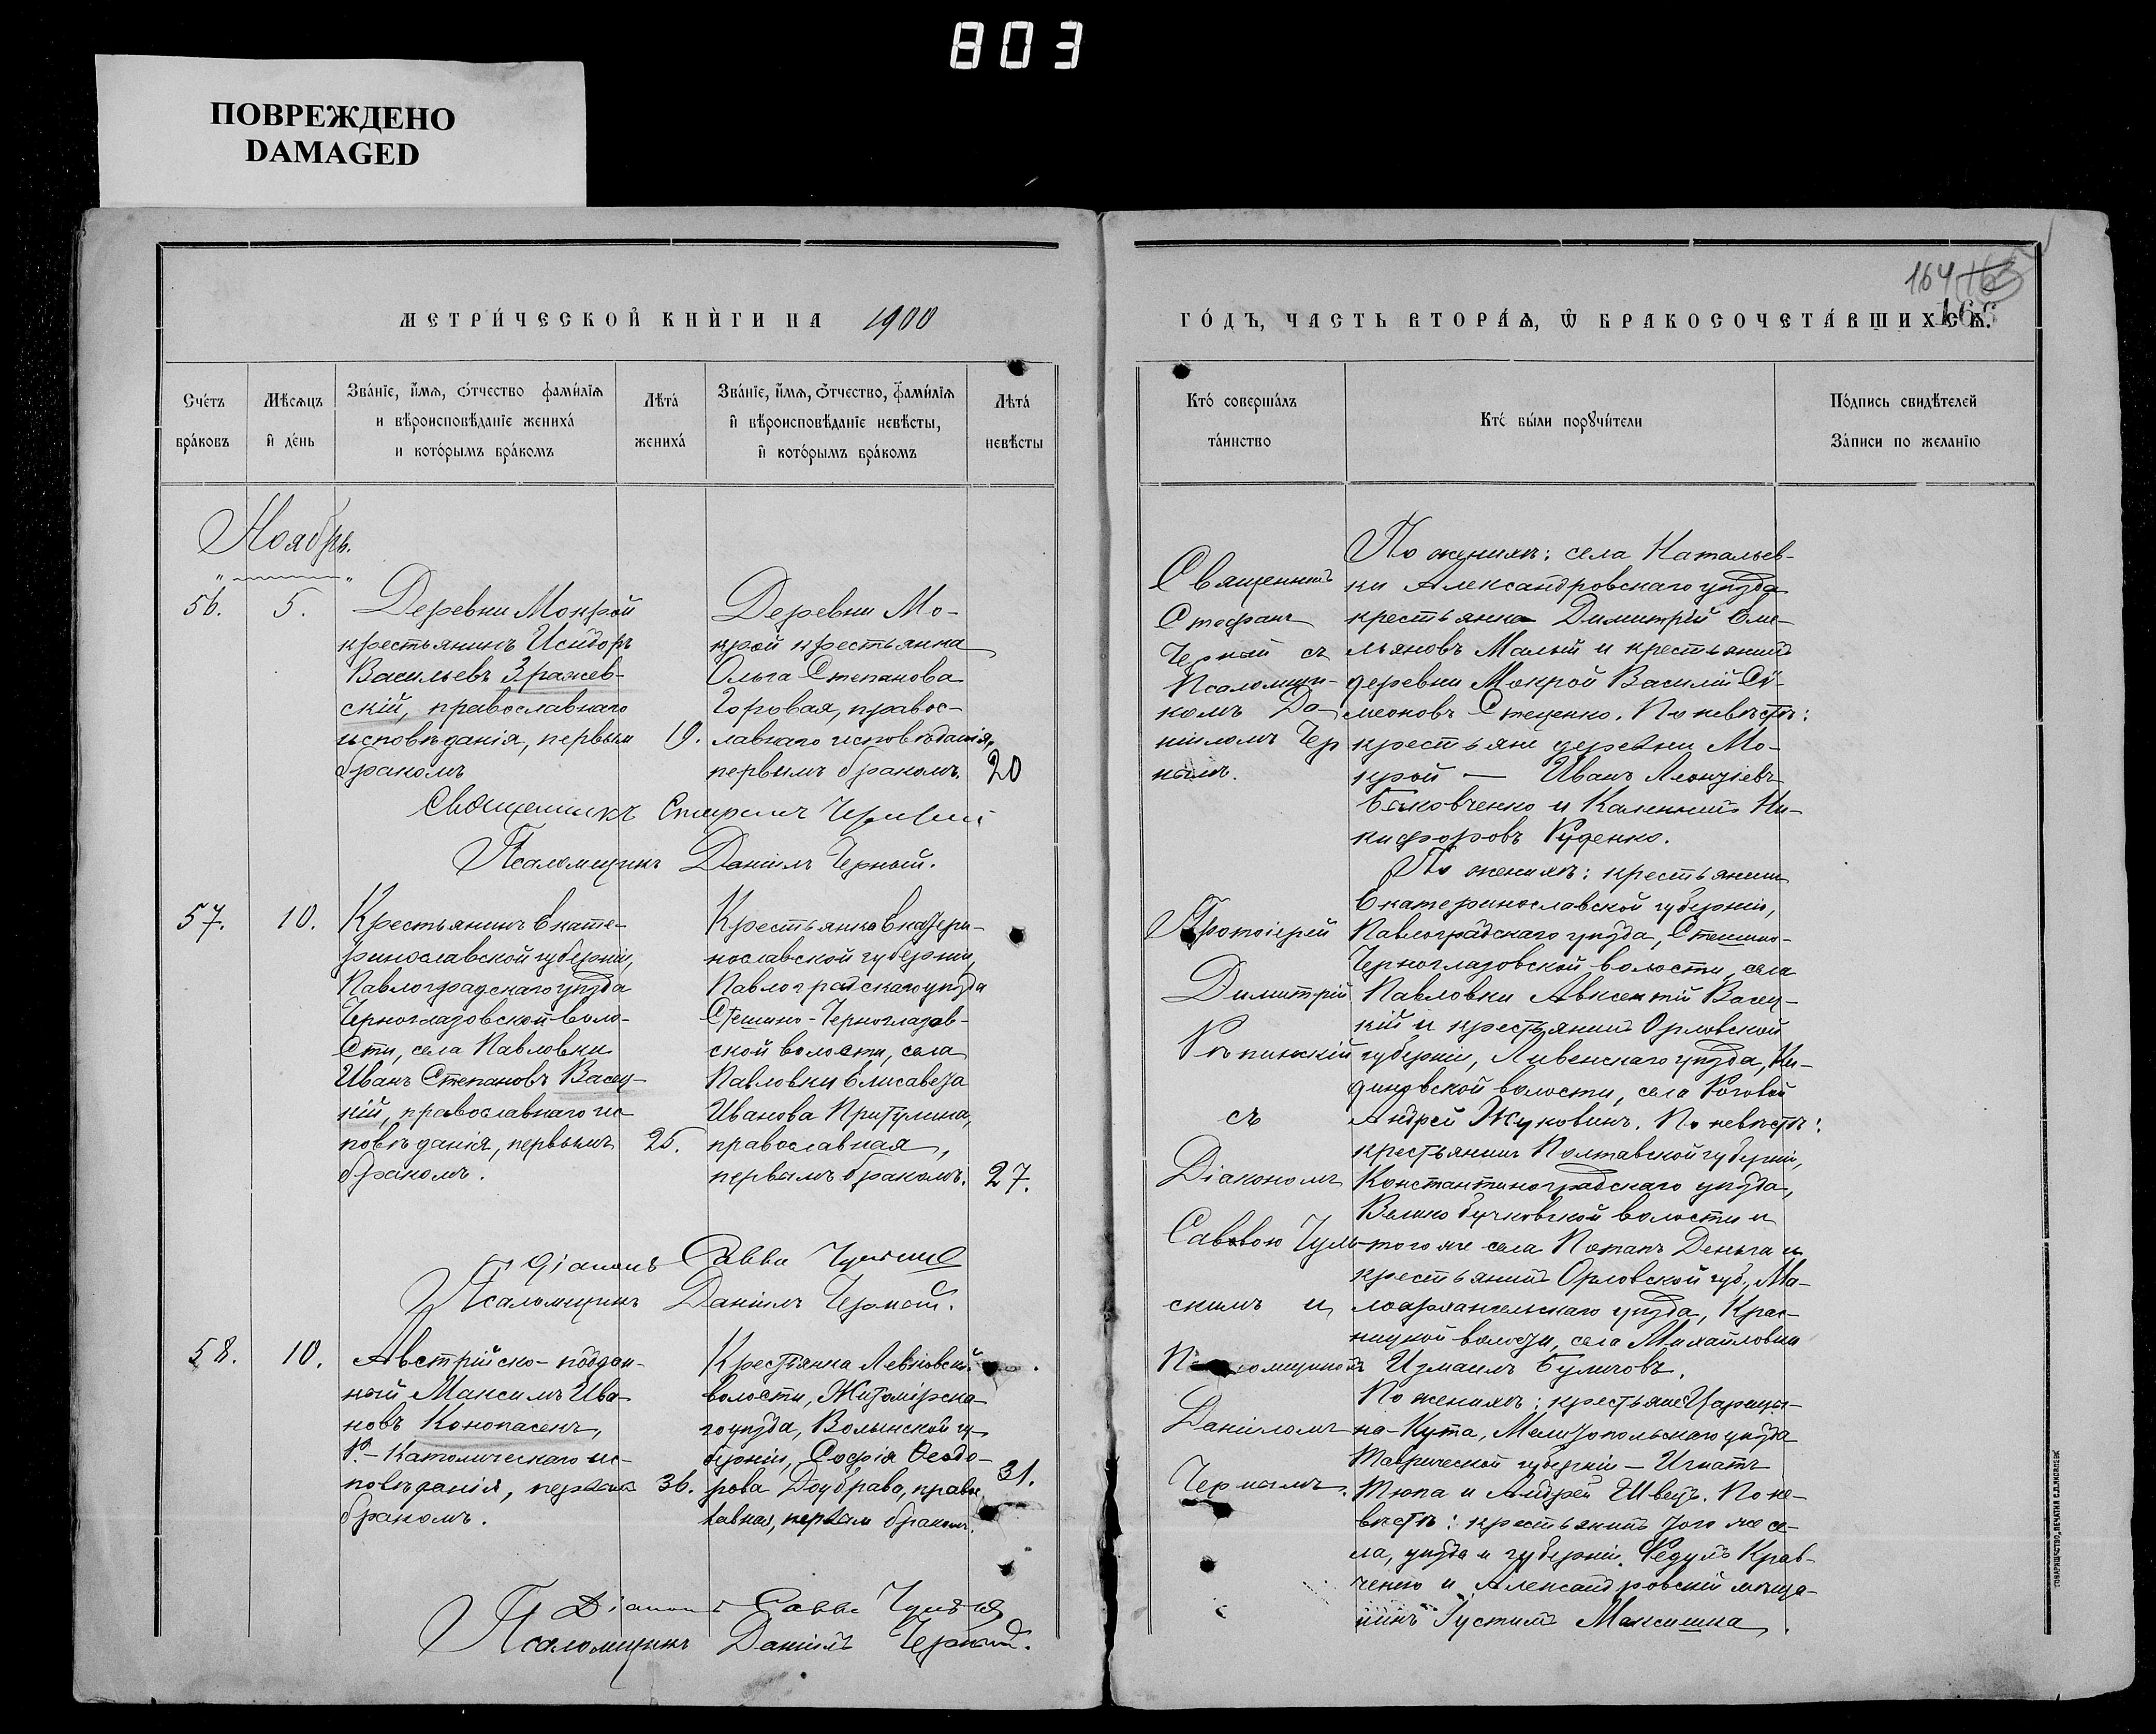 803
ПОВРЕЖДЕНО
DAMAGED
МЕТРИ́ЧЕСКОЙ КНИ́ГИ НА 1900
Сче́тъ бра́ковъ
Мѣ́сяцъ и҆ де́нь
Зва́нїе, и҆́мѧ, ѻ҆́тчество фами́лїѧ и вѣроисповѣ́данїе жениха́ и кото́рымъ бра́комъ
Лѣта́ жениха́
Зва́нїе, и҆́мѧ, ѻ҆́тчество, фами́лїѧ и҆ вѣроисповѣ́данїе невѣ́сты, и҆ кото́рымъ бра́комъ
Лѣта́ невѣ́сты
Ноябрь.
56. 5.
Деревни Мокрой
крестьянинъ Исидоръ
Васильевъ Зражев-
скій, православнаго
исповѣданія, первым
бракомъ
19.
Деревни Мо-
крой крестьянка
Ольга Степанова
Горовая, правос-
лавнаго исповѣданія,
первымъ бракомъ.
20
Священникъ Стефанъ Черный
Псаломщикъ Даніилъ Черный.
57. 10.
Крестьянинъ Екате-
ринославской губерніи,
Павлоградскаго уѣзда
Черноглазовской воло-
сти, села Павловки
Иванъ Степановъ Васец-
кій, православнаго ис-
повѣданія, первымъ
бракомъ.
25.
Крестьянка Екатери-
нославской губерніи,
Павлоградскаго уѣзда
Стешино-Черноглазов-
ской волости, села
Павловки Елисавета
Иванова Притулина,
православная,
первымъ бракомъ.
27.
Діаконъ Савва
Псаломщикъ Даніилъ Черный.
58. 10.
Австрійско-поддан-
ный Максимъ Ива-
новъ Конопасекъ,
Р.-Католическаго ис-
повѣданія, первымъ
бракомъ.
36.
Крестьянка
волости, Житомірска-
го уѣзда, Волынской гу-
берніи, Софія Ѳеодо-
рова Доубрава, правос
лавная, первым бракомъ.
31.
Діаконъ Савва
Псаломщикъ Даніилъ Черный.
164 165
166
ГО́ДЪ, ЧА́СТЬ ВТОРА́Ѧ, Ѽ БРАКОСОЧЕТА́ВШИХСѦ.
Кто́ соверша́лъ та́инство
Кто́ бы́ли порꙋчи́тели
По́дпись свидѣ́телей За́писи по жела́нїю
Священникъ
Стефанъ
Черный съ
Псаломщи-
комъ Да-
ніиломъ Чер
нымъ.
По женихѣ: села Натальев-
ки Александровскаго уѣзда
крестьяне Димитрій Еме-
льяновъ Малый и крестьянинъ
деревни Мокрой Василій Си-
меоновъ Стеценко. По невѣстѣ:
крестьяне деревни Мо-
крой — Иванъ Леонтіевъ
и Каленикъ Ни-
кифоровъ Руденко.
Протоіерей
Димитрій
Рѣпинскій
съ
Діакономъ
Саввою Чуль-
скимъ и
Псаломщикомъ
Даніиломъ
Чернымъ.
По женихѣ: крестьянин
Екатеринославской губерніи,
Павлоградскаго уѣзда, Стешино-
Черноглазовской волости, села
Павловки Авксентій Васец-
кій и крестьянинъ Орловской
губерніи, Ливенскаго уѣзда, Ни-
волости, села
Андрей Жуковинъ. По невѣстѣ:
крестьянин Полтавской губерніи,
Константиноградскаго уѣзда,
Велико бучковской волости и
того же села Потапъ Деньга и
крестьянинъ Орловской губ., Ма-
лоархангельскаго уѣзда,
волости, села Михайловки
Измаилъ Буличовъ.
По женихѣ: крестьяне Царицы-
на-Кута, Мелитопольскаго уѣзда
Таврической губерніи — Игнатъ
Тюпа и Андрей Швецъ. По не-
вѣстѣ: крестьянинъ того же се-
ла, уѣзда и губерніи, Федулъ Крав-
ченко и Александровскій мѣща-
нинъ Іустинъ Максишка.
ТОВАРИЩЕСТВО „ПЕЧАТНЯ С.П.ЯКОВЛЕВА"